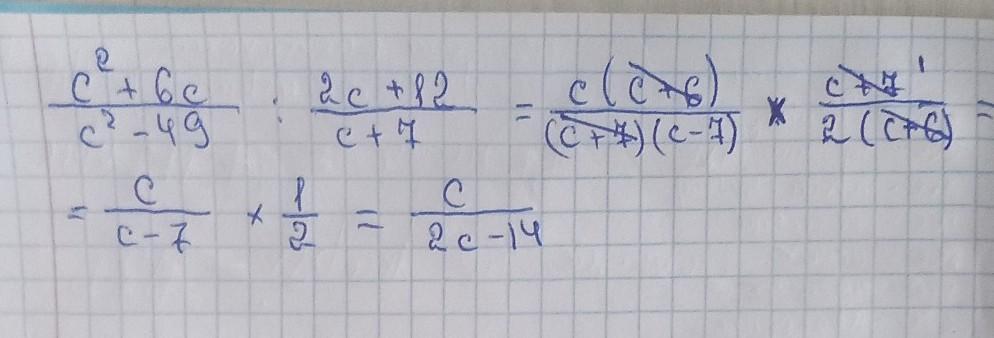 (c² + 6c)/(c² - 49) : (2c + 12)/(c + 7) = (c(c+6))/((c+7)(c-7)) × (c+7 1)/(2(c+6)) =
= c/(c-7) × 1/2 = c/(2c-14)